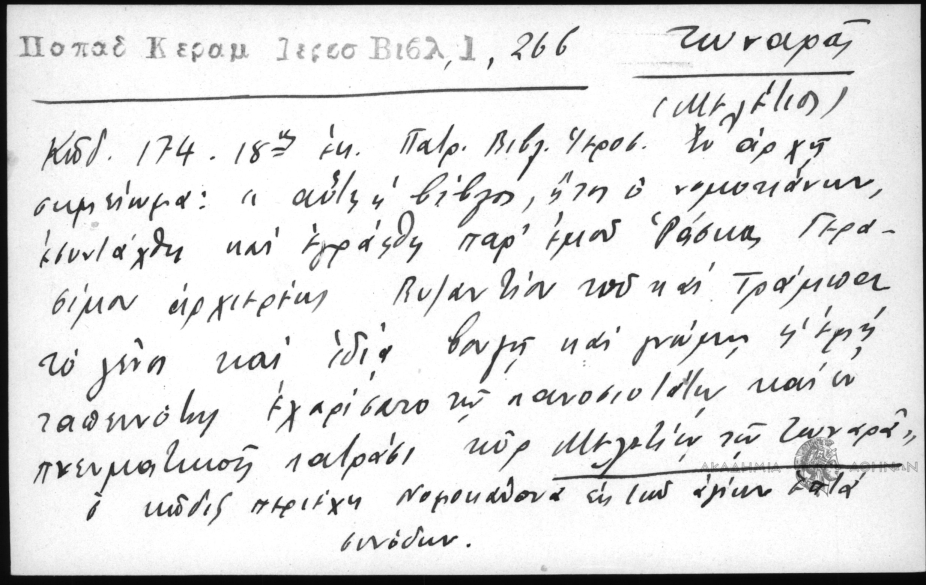 Παπαδ Κεραμ Ιεροσ Βιβλ, 1, 266
Τζυναρᾶς
(Μελέτιος)
Κῶδ. 174. 18ης ἑκ. Πατρ. Βιβλ. Ἱεροσ. Ἐν ἀρχῇ
σημείωμα: " αὕτη ἡ βίβλος, ἤτοι ὁ νομοκάνων,
ἐσυντάχθη καὶ ἐγράφθη παρ' ἐμοῦ Ῥάσκας Γερα-
σίμου ἀρχιερέως Βυζαντίου τοῦ καὶ
τὸ γένος καὶ ἰδίᾳ βουλῇ καὶ γνώμῃ ἡ ἐμὴ
ταπεινότης ἐχαρίσατο τῷ πανοσιοτάτῳ καὶ ἐν
πνευματικοῖς πατράσι κὺρ Μελετίῳ τῷ Τζυναρᾷ"
ὁ κῶδιξ περιέχῃ Νομοκάνονα ἐκ τῶν ἁγίων ἑπτὰ
συνόδων.
ΑΚΑΔΗΜΙΑ ΑΘΗΝΩΝ